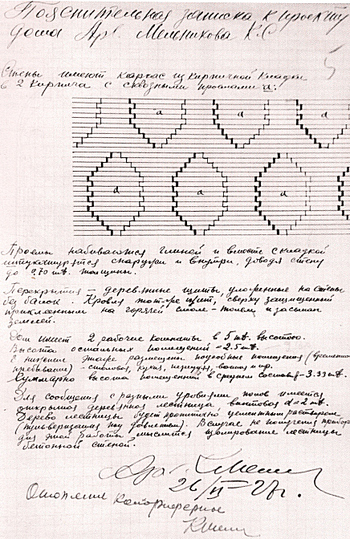 Пояснительная записка к проекту
дома Арх. Мельникова К.С.
Стены имеют каркас из кирпичной кладки
в 2 кирпича с сквозными проемами а.
а
а
а
а
а
Проемы набиваются глиной и вместе с кладкой
штукатурятся снаружи и внутри, доводя стену
до толщины.
Перекрытия – деревянные щиты, уложенные на стены
без балок. Кровля тот-же щит, сверху защищенный
приклеенным на горячей смоле – толем и засыпан
землей.
Дом имеет 2 рабочие комнаты в 5 mt. высотою.
Высота остальных помещений = 2.5 mt.
В нижнем этаже размещены подсобные помещения
– столовая, кухня, ванна и пр.
Суммарно высота помещений в среднем составит – 3.33 mt.
Для сообщения с разными уровнями полов имеется
открытая деревянная лестница, винтовая d = 2 mt.
Дерево лестницы будет пропитано цементным раствором
(под давлением). В случае не
для этой работы имеется лестницы
бетонной стеной.
Арх. КМельн
26/VI – 27 г.
Отопление калориферное
КМельн